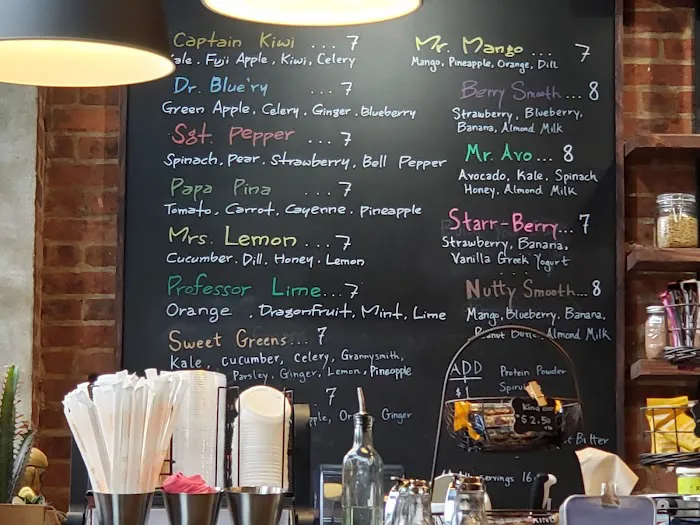 Captain Kiwi ... 7
ale. Fuji Apple, Kiwi, Celery
Dr. Blue'ry ... 7
Green Apple, Celery, Ginger, Blueberry
Sgt. Pepper ... 7
Spinach, Pear, Strawberry, Bell Pepper
Papa Pina ... 7
Tomato, Carrot, Cayenne, Pineapple
Mrs. Lemon ... 7
Cucumber, Dill, Honey, Lemon
Professor Lime... 7
Orange , Dragonfruit, Mint, Lime
Sweet Greens... 7
Kale, cucumber, Celery, Grannysmith,
Parsley, Ginger, Lemon, Pineapple
. 7
Ginger
Mr. Mango ... 7
Mango, Pineapple, Orange, Dill
Berry Smooth ... 8
Strawberry, Blueberry,
Banana, Almond Milk
Mr. Avo ... 8
Avocado, Kale, Spinach
Honey, Almond Milk
Starr-Berry... 7
Strawberry, Banana,
Vanilla Greek Yogurt
Nutty Smooth... 8
Mango, Blueberry, Banana,
Almond Milk
ADD
$1
Protein Powder
Kind
$2.50
Butter
16
KIND